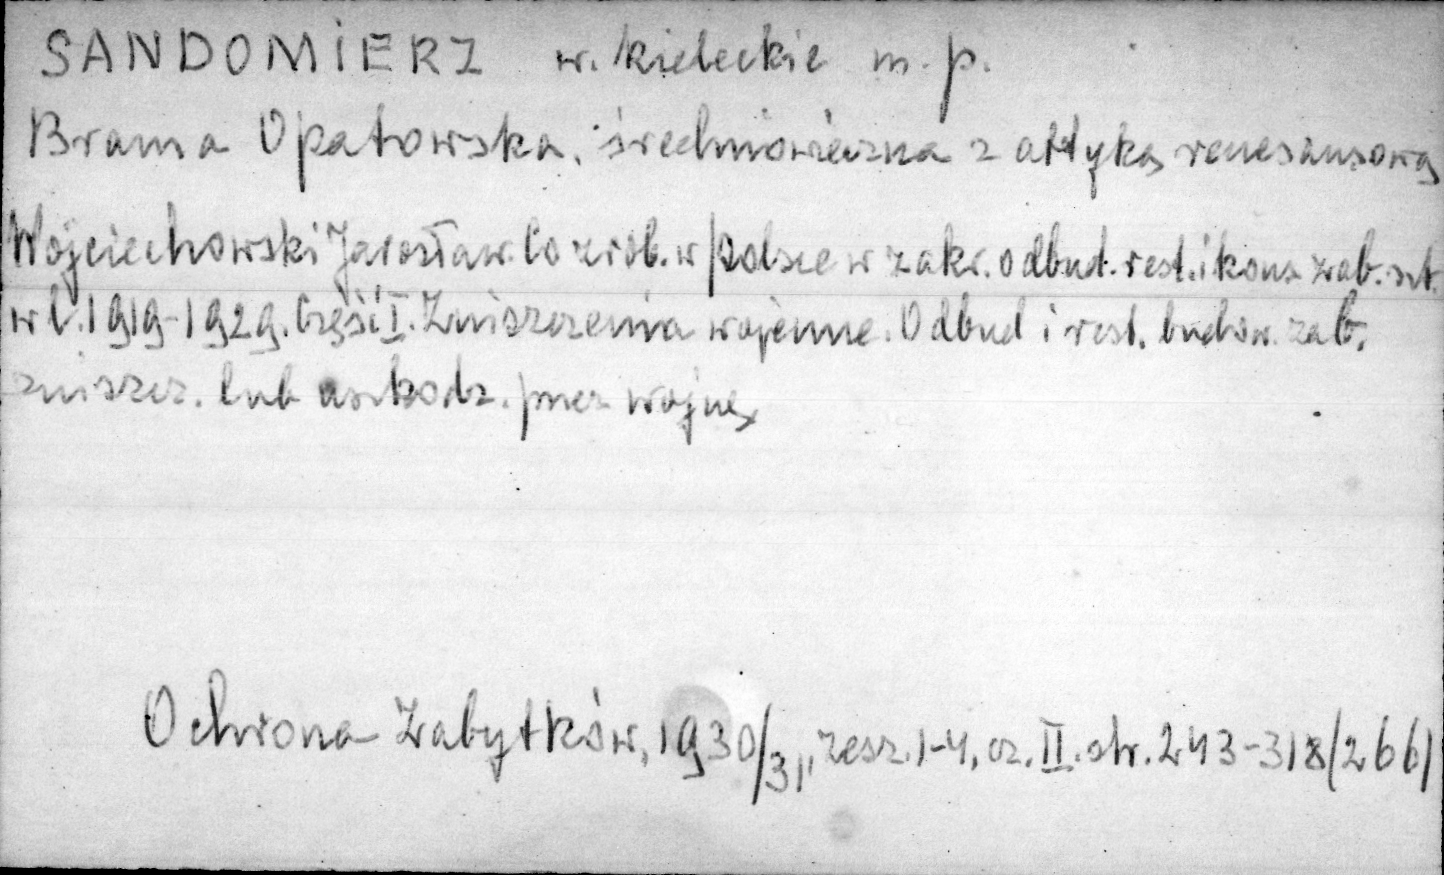 SANDOMIERZ w. kieleckie m. p.
Brama Opatowska, średniowieczna z attyką renesansową
Wojciechowski Jarosław. Co zrob. w Polsce w zakr. odbud. rest. i kons. zab. szt.
w l. 1919-1929. Część I. Zniszczenia wojenne. Odbud i rest. budow. zab.
zniszcz. lub uszkodz. przez wojnę
Ochrona Zabytków, 1930/31, zesz. 1-4, cz. II. str. 243-318/266/